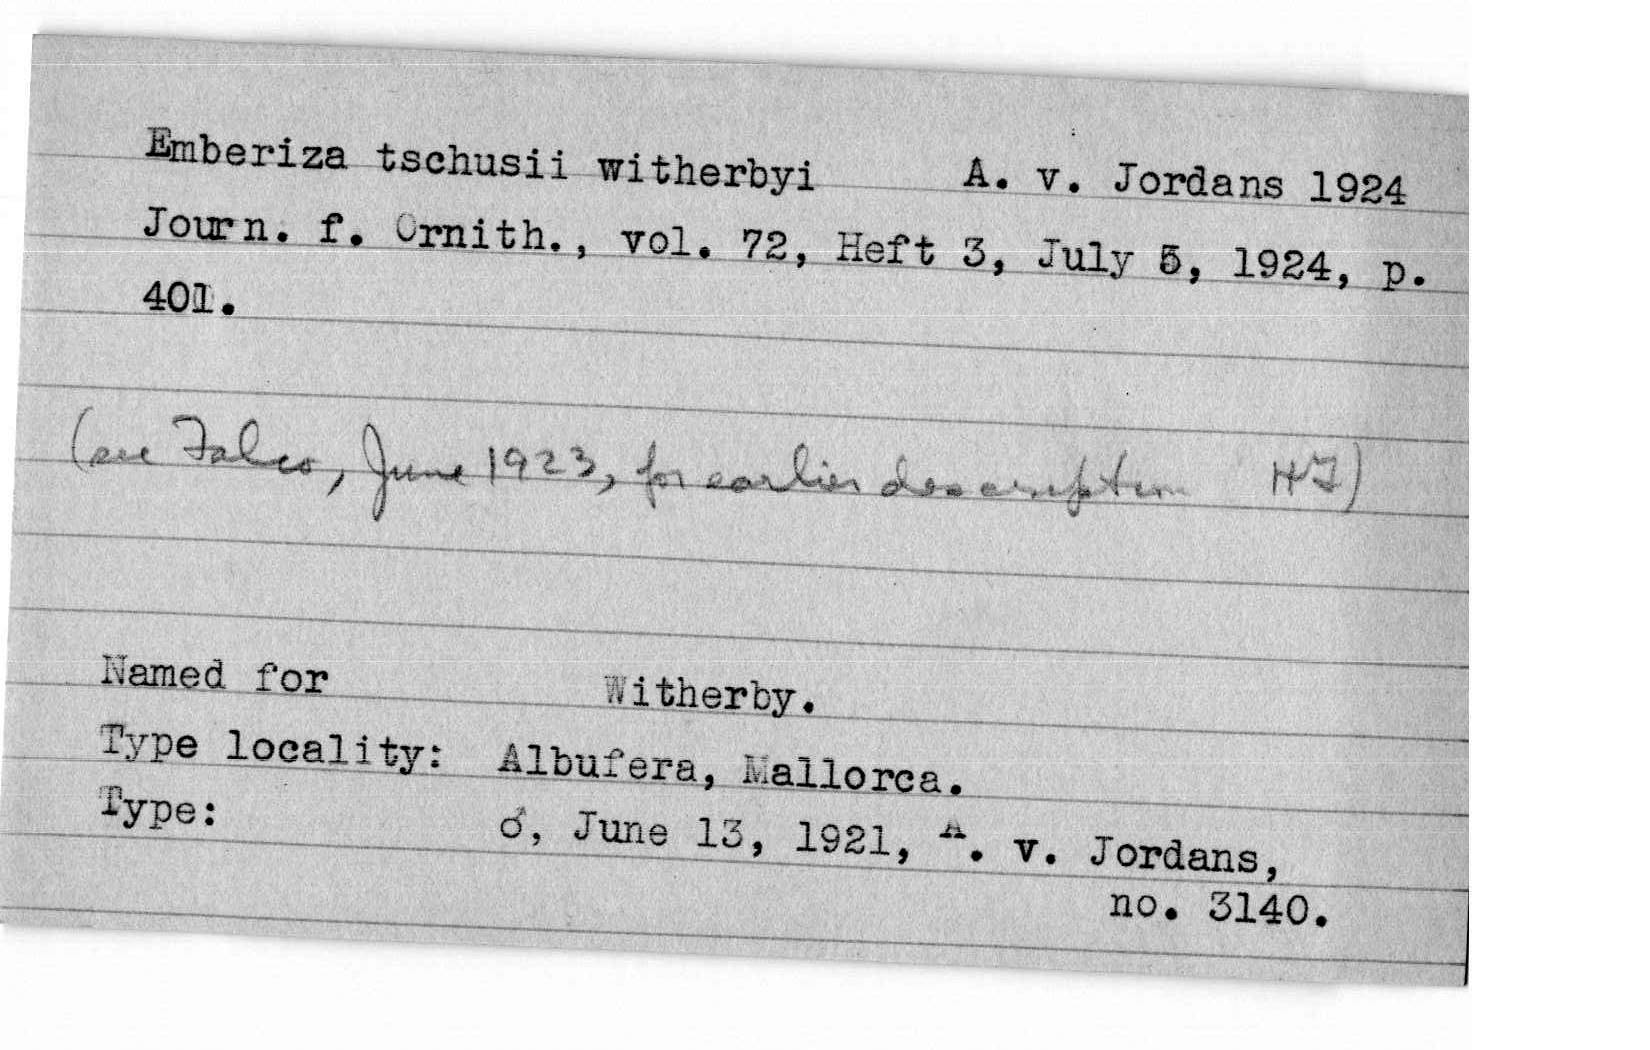 Emberiza tschusii witherbyi A. v. Jordans 1924
Journ. f. Ornith., vol. 72, Heft 3, July 5, 1924, p.
401.
(see Falco, June 1923, for earlier description HF)
Named for Witherby.
Type locality: Albufera, Mallorca.
Type: ♂, June 13, 1921, A. v. Jordans,
no. 3140.